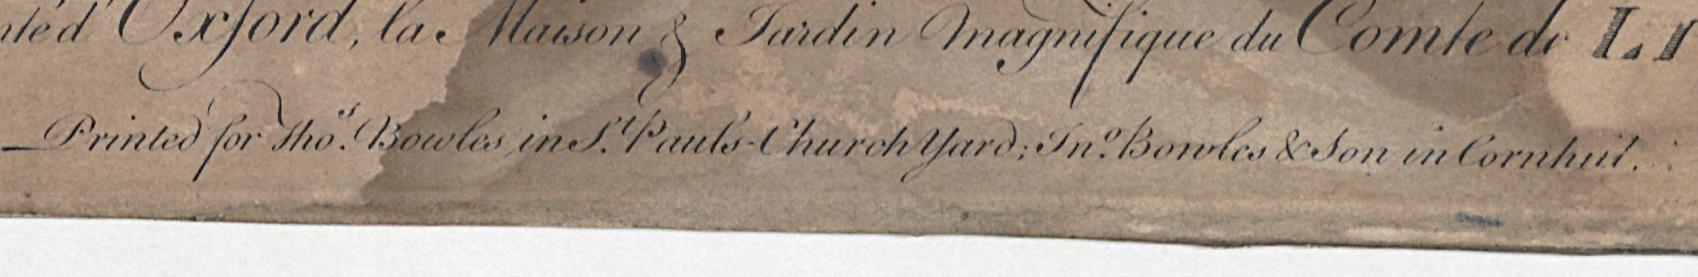 Oxford, la Maison & Jardin magnifique du Comte de
Printed for Thos. Bowles in St. Paul's Church Yard; Jno. Bowles & Son in Cornhill.